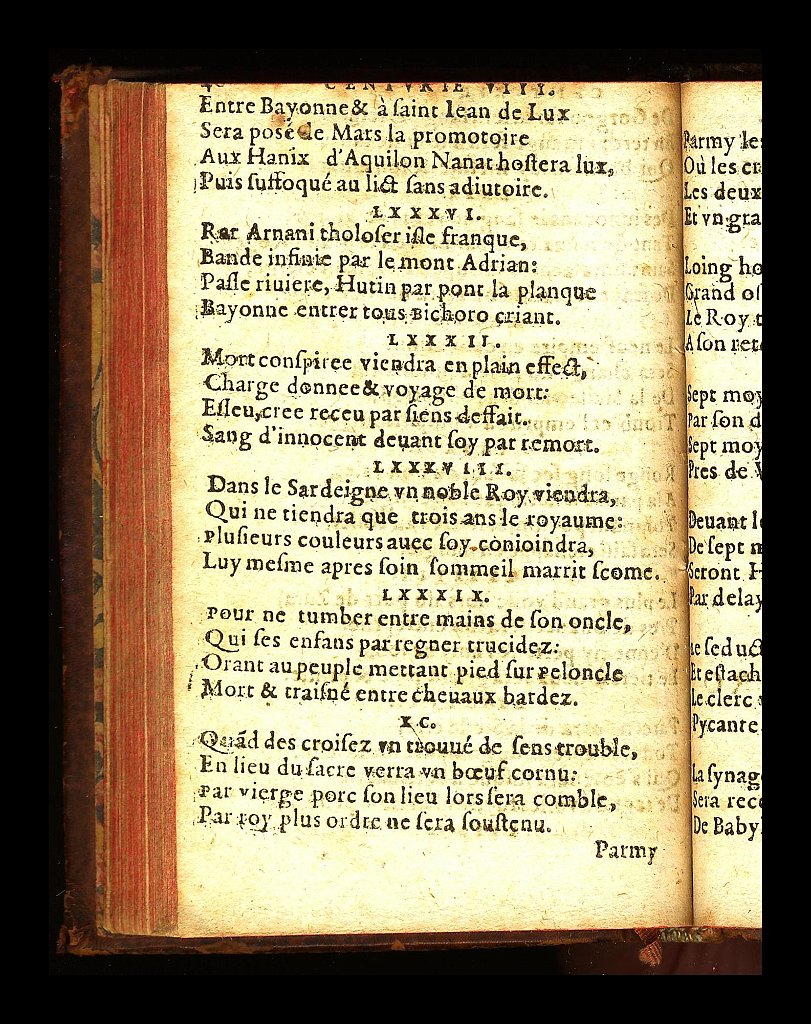 CENTVRIE VIII.
Entre Bayonne & à ſaint Iean de Lux
Sera posé de Mars la promotoire
Aux Hanix d'Aquilon Nanar hoſtera lux,
Puis ſuffoqué au lict ſans adiutoire.
LXXXVI.
Rar Arnani tholoſer iſle franque,
Bande infinie par le mont Adrian:
Paſſe riuiere, Hutin par pont la planque
Bayonne entrer tous Bichoro criant.
LXXXII.
Mort conſpiree viendra en plain effect,
Charge donnee & voyage de mort:
Eſleu, cree receu par ſiens deffait.
Sang d'innocent deuant ſoy par remort.
LXXXVIII.
Dans le Sardeigne vn noble Roy viendra,
Qui ne tiendra que trois ans le royaume:
Pluſieurs couleurs auec ſoy conioindra,
Luy meſme apres ſoin ſommeil marrit ſcome.
LXXXIX.
Pour ne tumber entre mains de ſon oncle,
Qui ſes enfans par regner trucidez:
Orant au peuple mettant pied ſur Peloncle
Mort & traiſné entre cheuaux bardez.
XC.
Quãd des croiſez vn trouué de ſens trouble,
En lieu du ſacre verra vn bœuf cornu:
Par vierge porc ſon lieu lors ſera comble,
Par roy plus ordre ne ſera ſouſtenu.
Parmy
Parmy les
Où les
Les deux
Et vn gra
Loing
Grand
Le Roy
A ſon
Sept moy
Par ſon
Sept moy
Pres de
Deuant
De ſept
Seront
Par delay
Le
Et
Le clerc
Pycante
La ſynag
Sera
De Baby